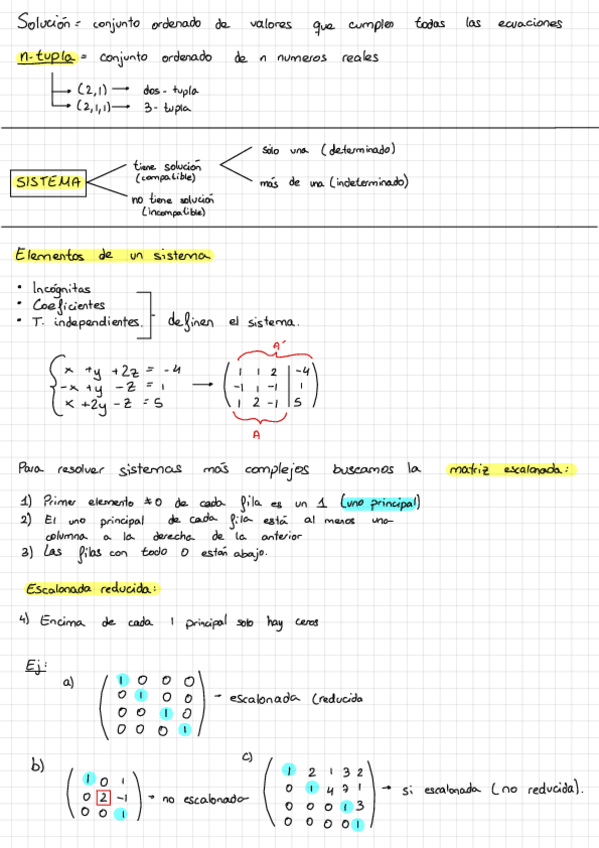 Solución = conjunto ordenado de valores que cumplen todas las ecuaciones
n-tupla = conjunto ordenado de n numeros reales
(2,1) → dos-tupla
(2,1,1) → 3-tupla
SISTEMA
tiene solución
(compatible)
solo una (determinado)
más de una (indeterminado)
no tiene solución
(incompatible)
Elementos de un sistema
• Incógnitas
• Coeficientes
• T. independientes.
definen el sistema.
A'
x + y + 2z = -4
-x + y - z = 1
x + 2y - z = 5
→
1 1 2 | -4
-1 1 -1 | 1
1 2 -1 | 5
A
Para resolver sistemas más complejos buscamos la matriz escalonada:
1) Primer elemento ≠0 de cada fila es un 1 (uno principal)
2) El uno principal de cada fila está al menos una
columna a la derecha de la anterior
3) Las filas con todo 0 están abajo.
Escalonada reducida:
4) Encima de cada 1 principal solo hay ceros
Ej:
a)
1 0 0 0
0 1 0 0
0 0 1 0
0 0 0 1
- escalonada (reducida
b)
1 0 1
0 2 -1
0 0 1
→ no escalonada
c)
1 2 1 3 2
0 1 4 7 1
0 0 0 1 3
0 0 0 0 1
→ si escalonada (no reducida).